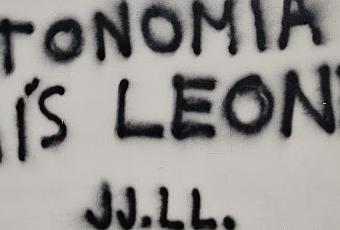 TONOMIA
ÍS LEON
JJ.LL.